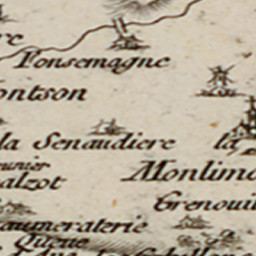 re
Fonsemagne
ontson
la Senaudiere la
eunier
alzot
Monlimo
Grenouil
aumeraterie
Queue